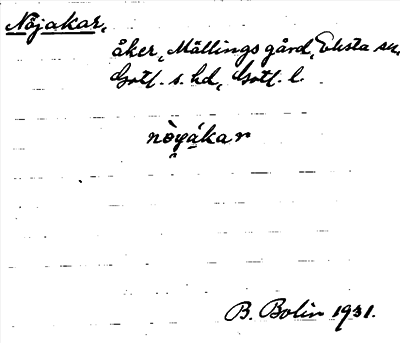 Nöjakar,
åker, Mällings gård, Eksta sn,
Gotl. s. hd, Gotl. l.
nòyákar
B. Bolin 1931.